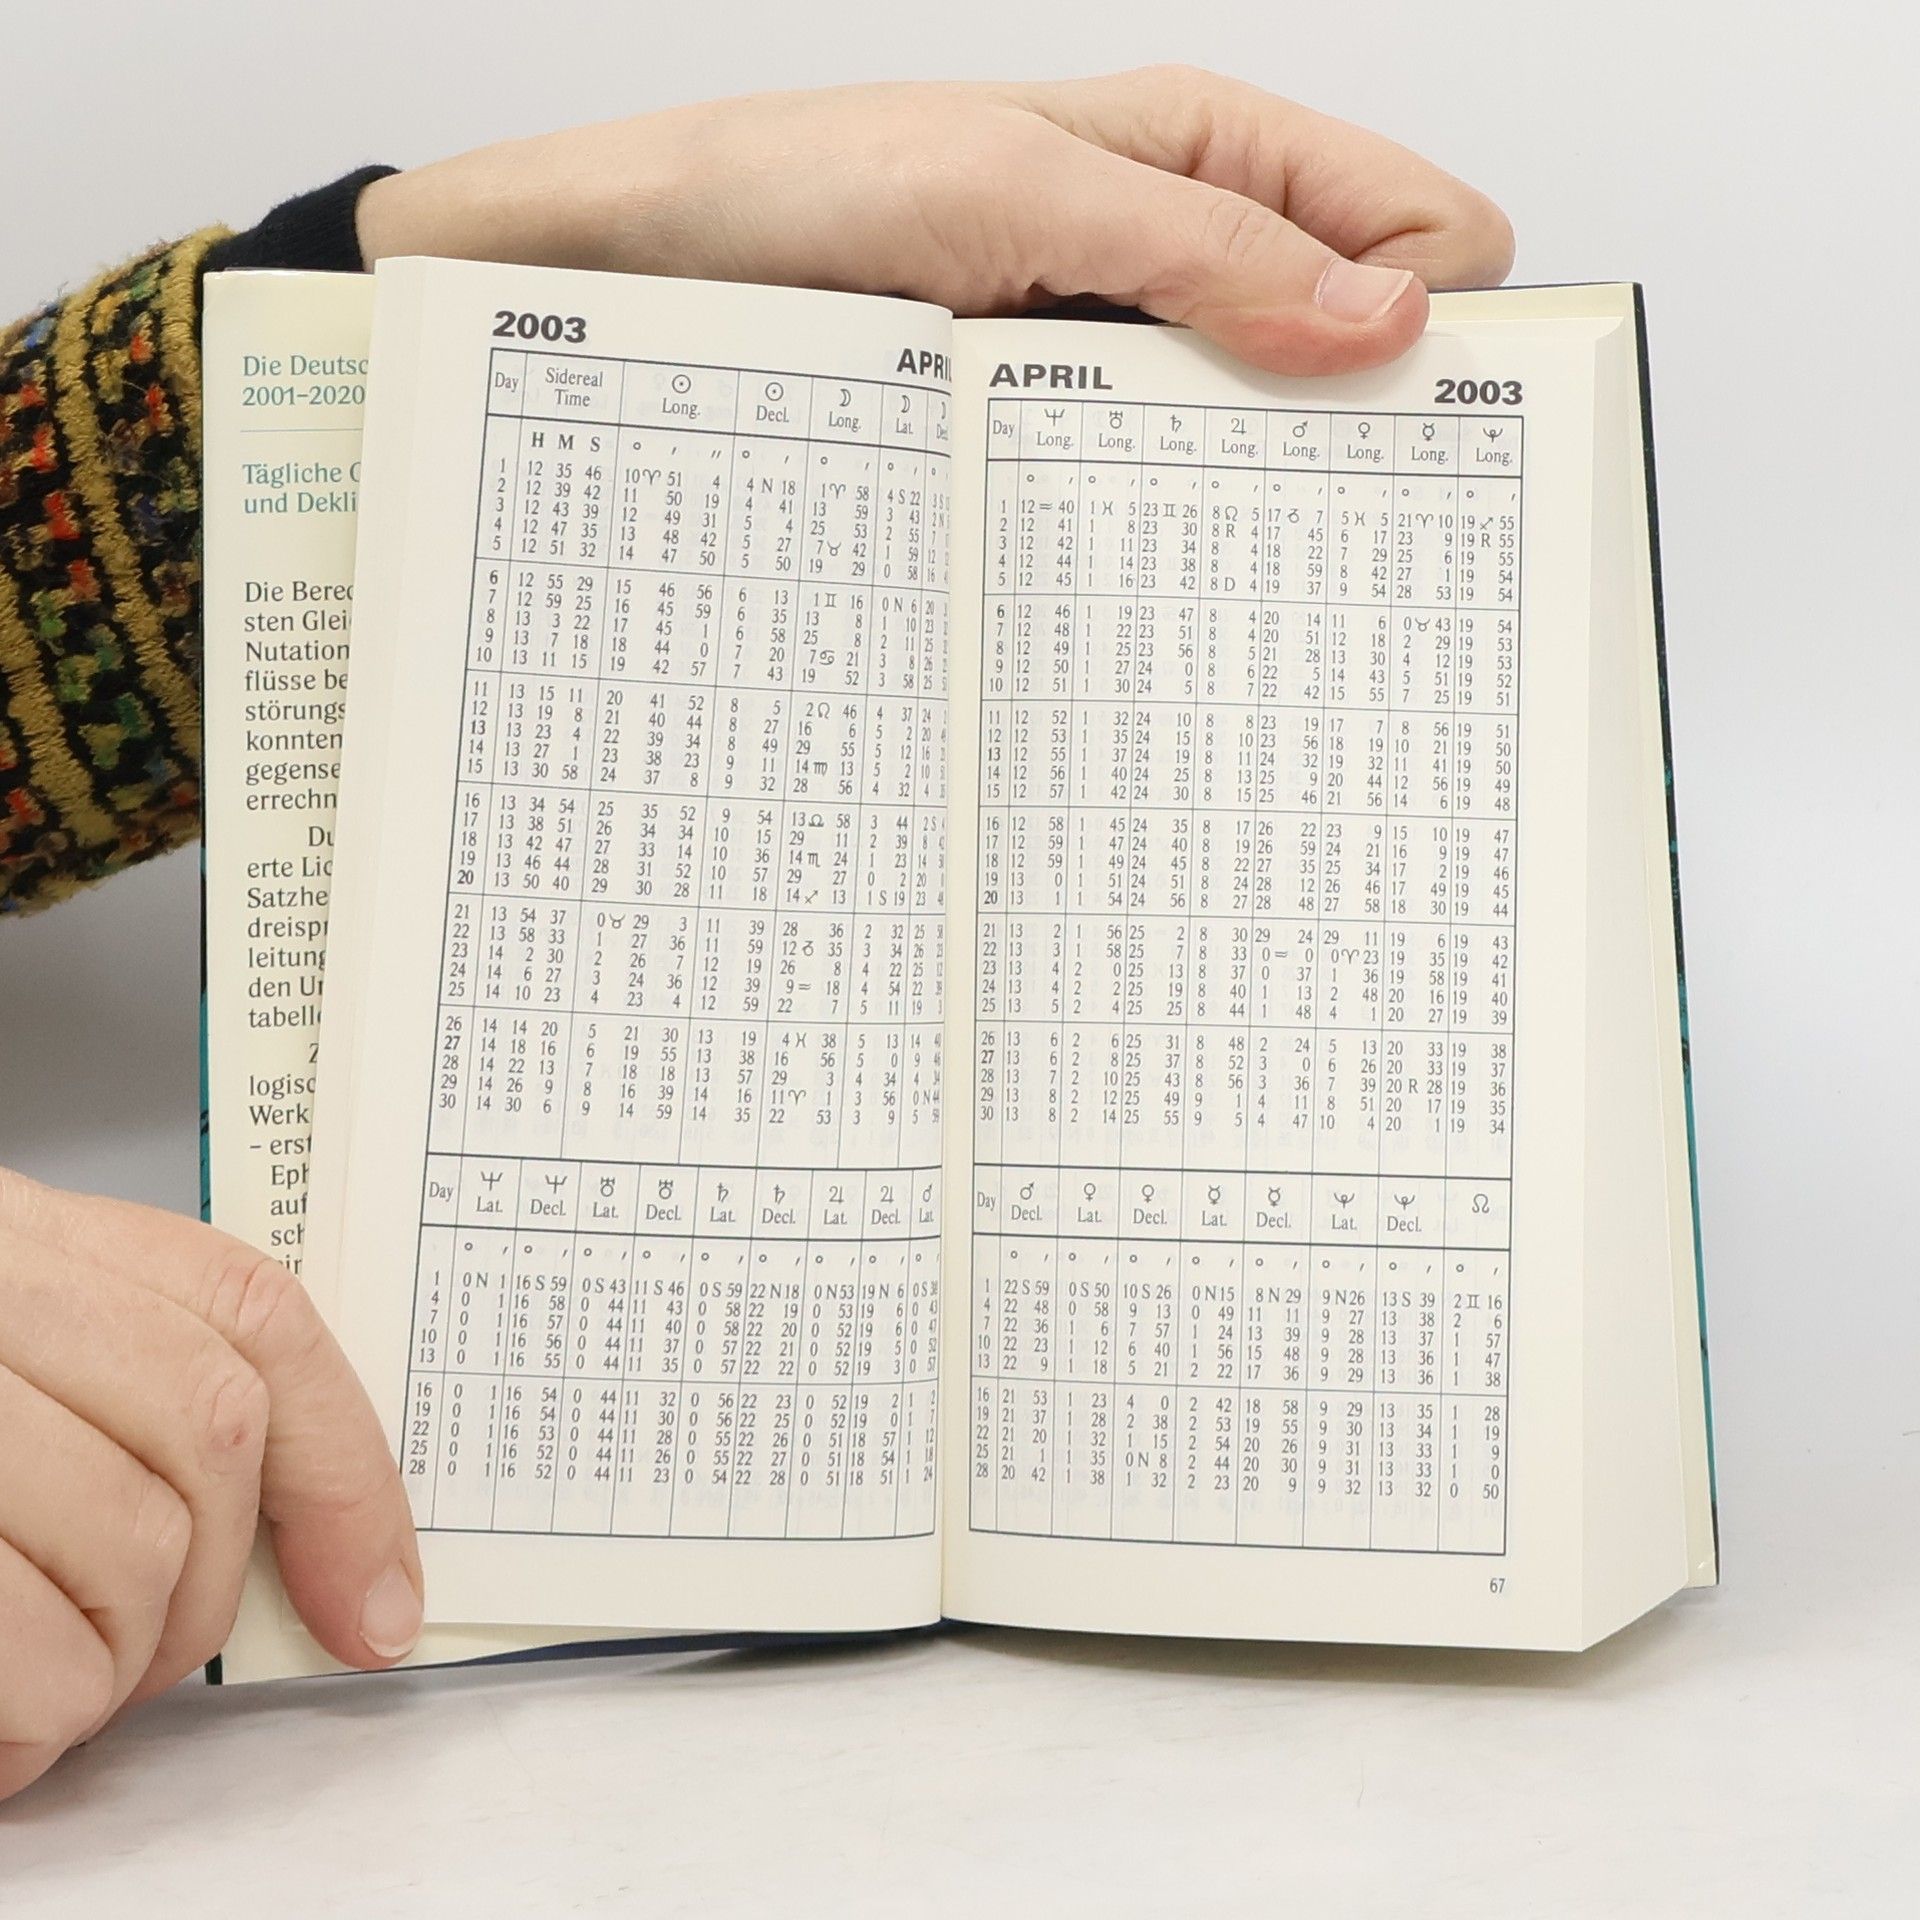 Die Deutsc
2001–2020
Tägliche
und Dekli
Die Berec
sten Glei
Nutation
flüsse be
störungs
konnten
gegense
errechn
Du
erte Lic
Satzhe
dreispr
leitung
den Un
tabelle
Z
logisc
Werk
– erst
Eph
auf
sch
2003
APRIL
Day Sidereal Time ☉ Long. ☉ Decl. ☽ Long. ☽ Lat. ☽
H M S ° ′ ″ ° ′ ° ′ ° ′ °
1 12 35 46 10♈51 4 4 N 18 1♈58 4 S 22
2 12 39 42 11 50 19 4 41 13 59 3 43
3 12 43 39 12 49 31 5 4 25 53 2 55
4 12 47 35 13 48 42 5 27 7♉42 1 59
5 12 51 32 14 47 50 5 50 19 29 0 58
6 12 55 29 15 46 56 6 13 1♊16 0 N 6 20
7 12 59 25 16 45 59 6 35 13 8 1 10 23
8 13 3 22 17 45 1 6 58 25 8 2 11 25
9 13 7 18 18 44 0 7 20 7♋21 3 8 26
10 13 11 15 19 42 57 7 43 19 52 3 58 25
11 13 15 11 20 41 52 8 5 2♌46 4 37 24
12 13 19 8 21 40 44 8 27 16 6 5 2 20
13 13 23 4 22 39 34 8 49 29 55 5 12 16
14 13 27 1 23 38 23 9 11 14♍13 5 2 10
15 13 30 58 24 37 8 9 32 28 56 4 32 4
16 13 34 54 25 35 52 9 54 13♎58 3 44 2 S
17 13 38 51 26 34 34 10 15 29 11 2 39 8
18 13 42 47 27 33 14 10 36 14♏24 1 23 14
19 13 46 44 28 31 52 10 57 29 27 0 2 20
20 13 50 40 29 30 28 11 18 14♐13 1 S 19 23
21 13 54 37 0♉29 3 11 39 28 36 2 32 25
22 13 58 33 1 27 36 11 59 12♑35 3 34 26
23 14 2 30 2 26 7 12 19 26 8 4 22 25
24 14 6 27 3 24 36 12 39 9♒18 4 54 22
25 14 10 23 4 23 4 12 59 22 7 5 11 19
26 14 14 20 5 21 30 13 19 4♓38 5 13 14
27 14 18 16 6 19 55 13 38 16 56 5 0 9
28 14 22 13 7 18 18 13 57 29 3 4 34 4
29 14 26 9 8 16 39 14 16 11♈1 3 56 0 N
30 14 30 6 9 14 59 14 35 22 53 3 9 5
Day ♆ Lat. ♆ Decl. ♅ Lat. ♅ Decl. ♄ Lat. ♄ Decl. ♃ Lat. ♃ Decl. ♂ Lat.
° ′ ° ′ ° ′ ° ′ ° ′ ° ′ ° ′ ° ′ ° ′
1 0 N 1 16 S 59 0 S 43 11 S 46 0 S 59 22 N 18 0 N 53 19 N 6 0 S 38
4 0 1 16 58 0 44 11 43 0 58 22 19 0 53 19 6 0 43
7 0 1 16 57 0 44 11 40 0 58 22 20 0 52 19 6 0 47
10 0 1 16 56 0 44 11 37 0 57 22 21 0 52 19 5 0 52
13 0 1 16 55 0 44 11 35 0 57 22 22 0 52 19 3 0 57
16 0 1 16 54 0 44 11 32 0 56 22 23 0 52 19 2 1 2
19 0 1 16 54 0 44 11 30 0 56 22 25 0 52 19 0 1 7
22 0 1 16 53 0 44 11 28 0 55 22 26 0 51 18 57 1 12
25 0 1 16 52 0 44 11 26 0 55 22 27 0 51 18 54 1 18
28 0 1 16 52 0 44 11 23 0 54 22 28 0 51 18 51 1 24
APRIL
2003
Day ♆ Long. ♅ Long. ♄ Long. ♃ Long. ♂ Long. ♀ Long. ☿ Long. ♇ Long.
° ′ ° ′ ° ′ ° ′ ° ′ ° ′ ° ′ ° ′
1 12♒40 1♓5 23♊26 8♌5 17♑7 5♓5 21♈10 19♐55
2 12 41 1 8 23 30 8 R 4 17 45 6 17 23 9 19 R 55
3 12 42 1 11 23 34 8 4 18 22 7 29 25 6 19 55
4 12 44 1 14 23 38 8 4 18 59 8 42 27 1 19 54
5 12 45 1 16 23 42 8 D 4 19 37 9 54 28 53 19 54
6 12 46 1 19 23 47 8 4 20 14 11 6 0♉43 19 54
7 12 48 1 22 23 51 8 4 20 51 12 18 2 29 19 53
8 12 49 1 25 23 56 8 5 21 28 13 30 4 12 19 53
9 12 50 1 27 24 0 8 6 22 5 14 43 5 51 19 52
10 12 51 1 30 24 5 8 7 22 42 15 55 7 25 19 51
11 12 52 1 32 24 10 8 8 23 19 17 7 8 56 19 51
12 12 53 1 35 24 15 8 10 23 56 18 19 10 21 19 50
13 12 55 1 37 24 19 8 11 24 32 19 32 11 41 19 50
14 12 56 1 40 24 25 8 13 25 9 20 44 12 56 19 49
15 12 57 1 42 24 30 8 15 25 46 21 56 14 6 19 48
16 12 58 1 45 24 35 8 17 26 22 23 9 15 10 19 47
17 12 59 1 47 24 40 8 19 26 59 24 21 16 9 19 47
18 12 59 1 49 24 45 8 22 27 35 25 34 17 2 19 46
19 13 0 1 51 24 51 8 24 28 12 26 46 17 49 19 45
20 13 1 1 54 24 56 8 27 28 48 27 58 18 30 19 44
21 13 2 1 56 25 2 8 30 29 24 29 11 19 6 19 43
22 13 3 1 58 25 7 8 33 0♒0 0♈23 19 35 19 42
23 13 4 2 0 25 13 8 37 0 37 1 36 19 58 19 41
24 13 4 2 2 25 19 8 40 1 13 2 48 20 16 19 40
25 13 5 2 4 25 25 8 44 1 48 4 1 20 27 19 39
26 13 6 2 6 25 31 8 48 2 24 5 13 20 33 19 38
27 13 6 2 8 25 37 8 52 3 0 6 26 20 33 19 37
28 13 7 2 10 25 43 8 56 3 36 7 39 20 R 28 19 36
29 13 8 2 12 25 49 9 1 4 11 8 51 20 17 19 35
30 13 8 2 14 25 55 9 5 4 47 10 4 20 1 19 34
Day ♂ Decl. ♀ Lat. ♀ Decl. ☿ Lat. ☿ Decl. ♇ Lat. ♇ Decl. ☊
° ′ ° ′ ° ′ ° ′ ° ′ ° ′ ° ′ ° ′
1 22 S 59 0 S 50 10 S 26 0 N 15 8 N 29 9 N 26 13 S 39 2♊16
4 22 48 0 58 9 13 0 49 11 11 9 27 13 38 2 6
7 22 36 1 6 7 57 1 24 13 39 9 28 13 37 1 57
10 22 23 1 12 6 40 1 56 15 48 9 28 13 36 1 47
13 22 9 1 18 5 21 2 22 17 36 9 29 13 36 1 38
16 21 53 1 23 4 0 2 42 18 58 9 29 13 35 1 28
19 21 37 1 28 2 38 2 53 19 55 9 30 13 34 1 19
22 21 20 1 32 1 15 2 54 20 26 9 31 13 33 1 9
25 21 1 1 35 0 N 8 2 44 20 30 9 31 13 33 1 0
28 20 42 1 38 1 32 2 23 20 9 9 32 13 32 0 50
67